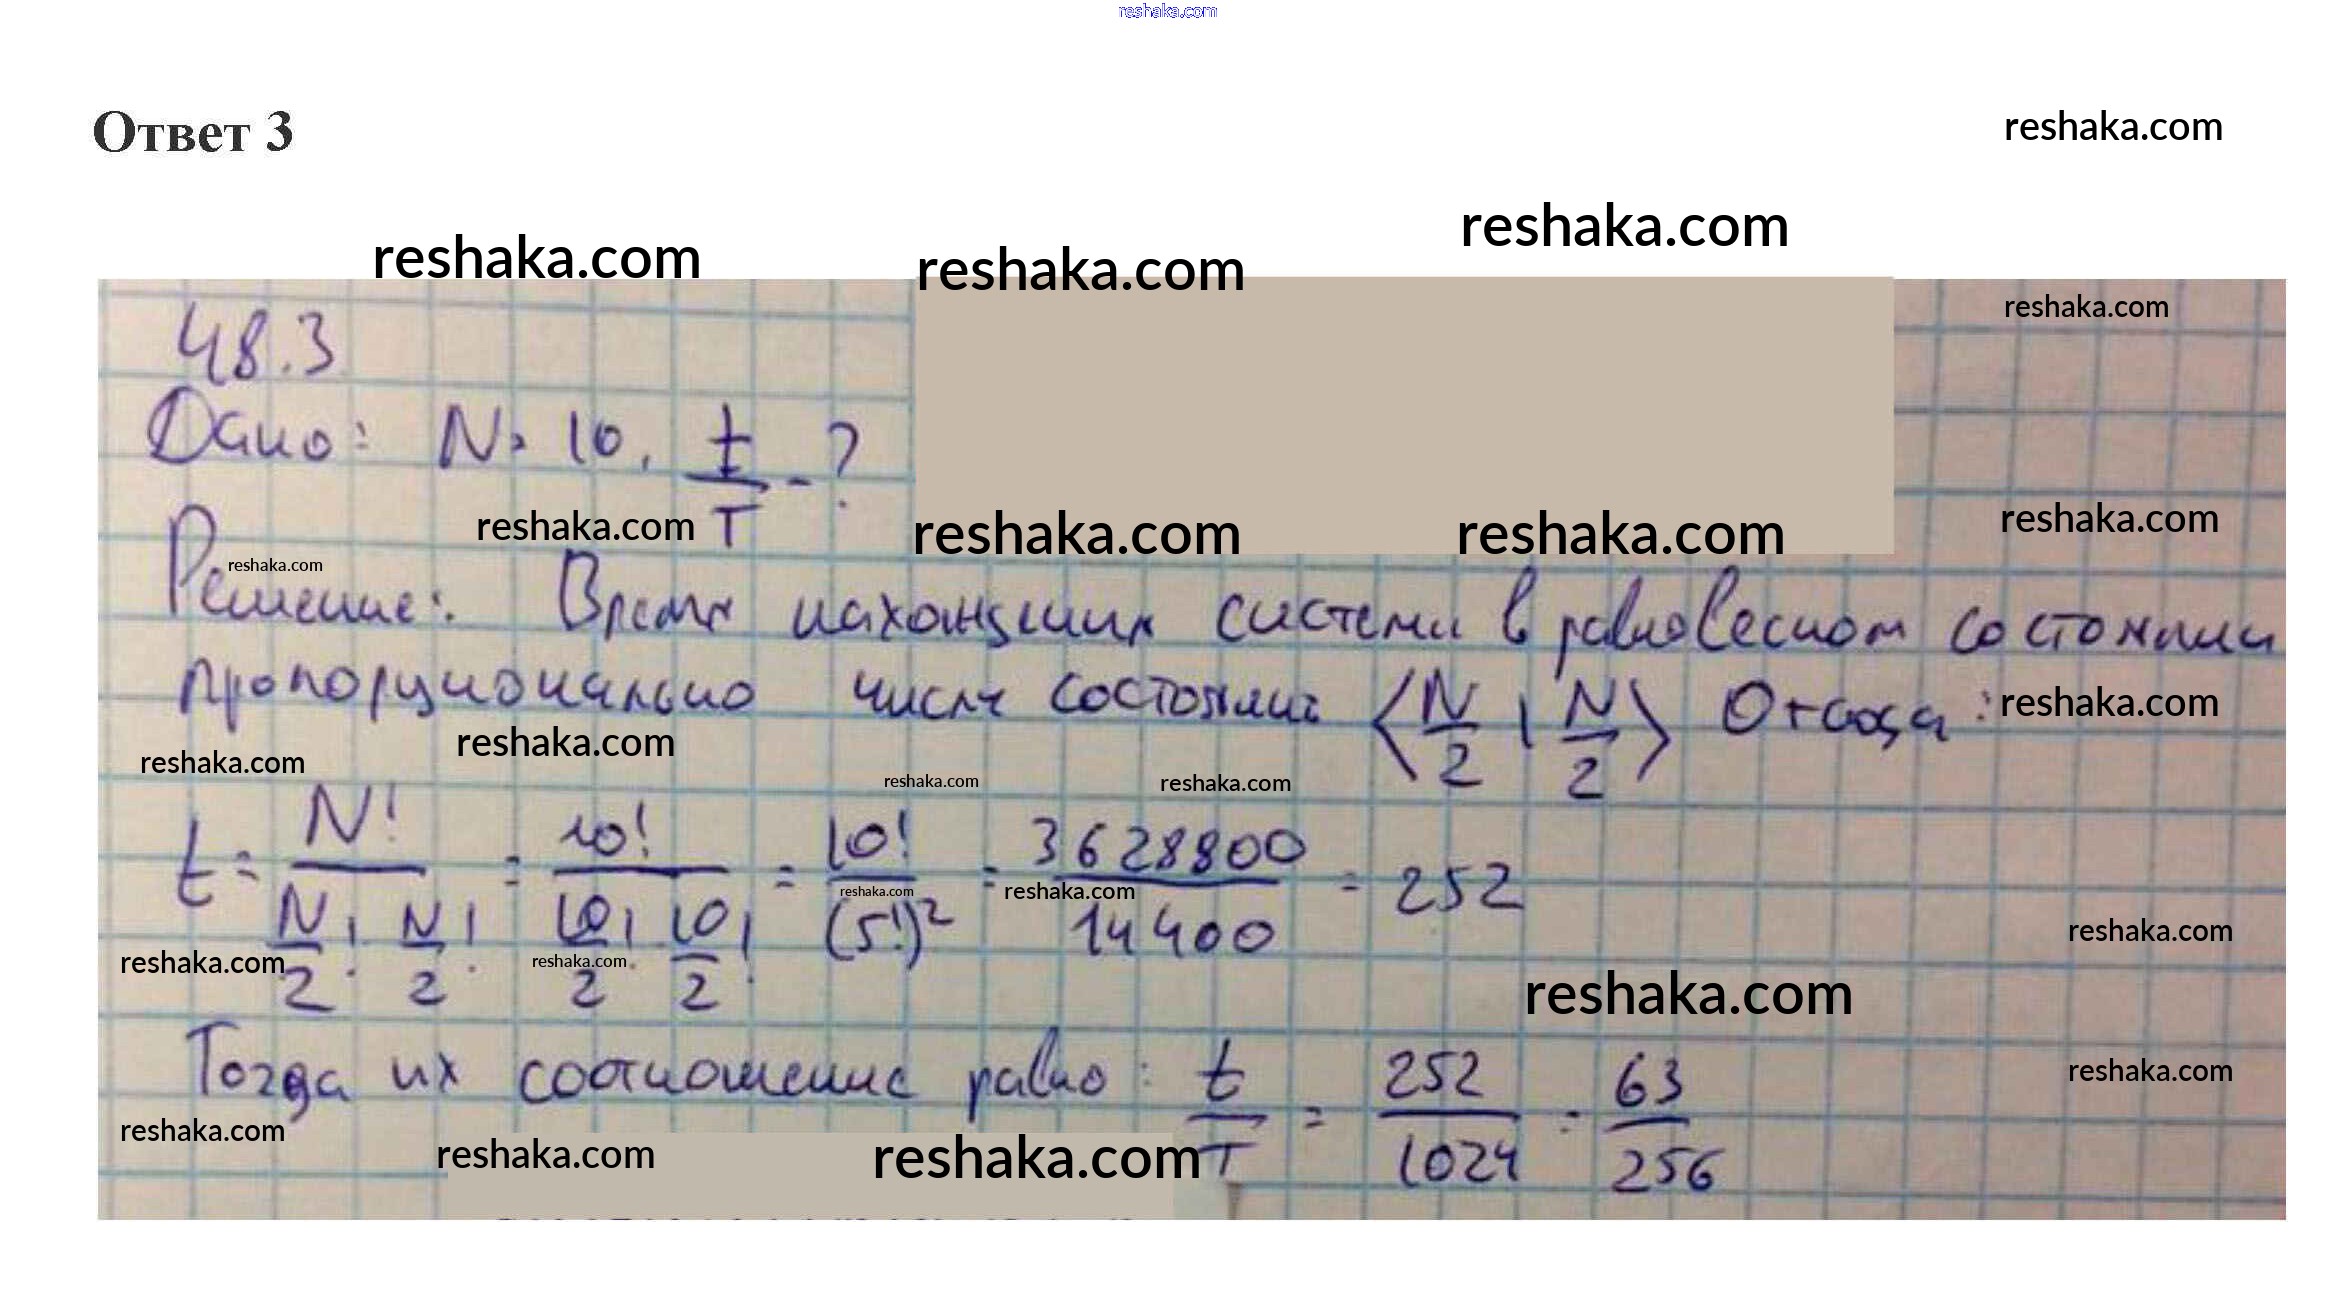 reshaka.com
Ответ 3
reshaka.com
reshaka.com
reshaka.com
reshaka.com
48.3
reshaka.com
Дано: N = 10, t/T - ?
reshaka.com
reshaka.com
reshaka.com
reshaka.com
Решение: Время нахождения системы в равновесном состоянии
reshaka.com
пропорционально числу состояний ⟨N/2 | N/2⟩ Отсюда:
reshaka.com
reshaka.com
reshaka.com
reshaka.com
reshaka.com
t = N!/(N/2! N/2!) = 10!/(10/2! 10/2!) = 10!/(5!)² = 3628800/14400 = 252
reshaka.com
reshaka.com
reshaka.com
reshaka.com
reshaka.com
reshaka.com
Тогда их соотношение равно: t/T = 252/1024 = 63/256
reshaka.com
reshaka.com
reshaka.com
reshaka.com